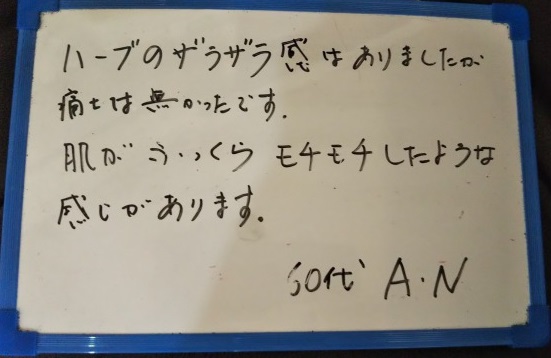 ハーブのザラザラ感はありましたが
痛さは無かったです.
肌がふっくらモチモチしたような
感じがあります.
50代 A.N